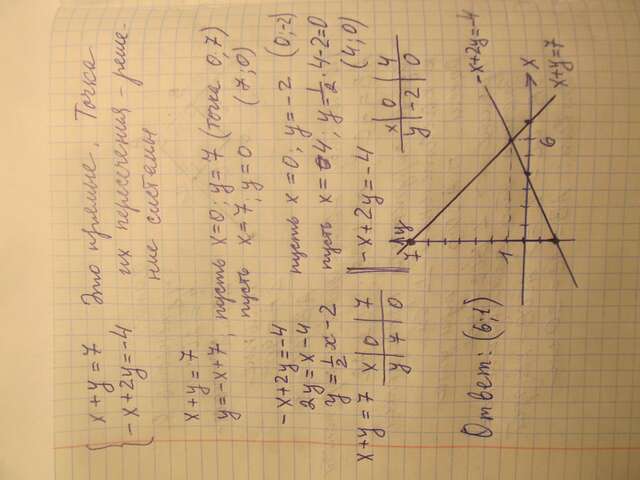 { x + y = 7
-x + 2y = -4
Это прямые. Точка
их пересечения - реше-
ние системы
x + y = 7
y = -x + 7, пусть x = 0; y = 7 (точка 0; 7)
пусть x = 7, y = 0 (7; 0)
-x + 2y = -4
2y = x - 4
y = 1/2 x - 2
пусть x = 0; y = -2 (0; -2)
пусть x = 4; y = 1/2 · 4 - 2 = 0
(4; 0)
x + y = 7
x | 0 | 7
y | 7 | 0
-x + 2y = -4
x | 0 | 4
y | -2 | 0
y
7
1
6
x
-x + 2y = -4
x + y = 7
Ответ: (6; 1)